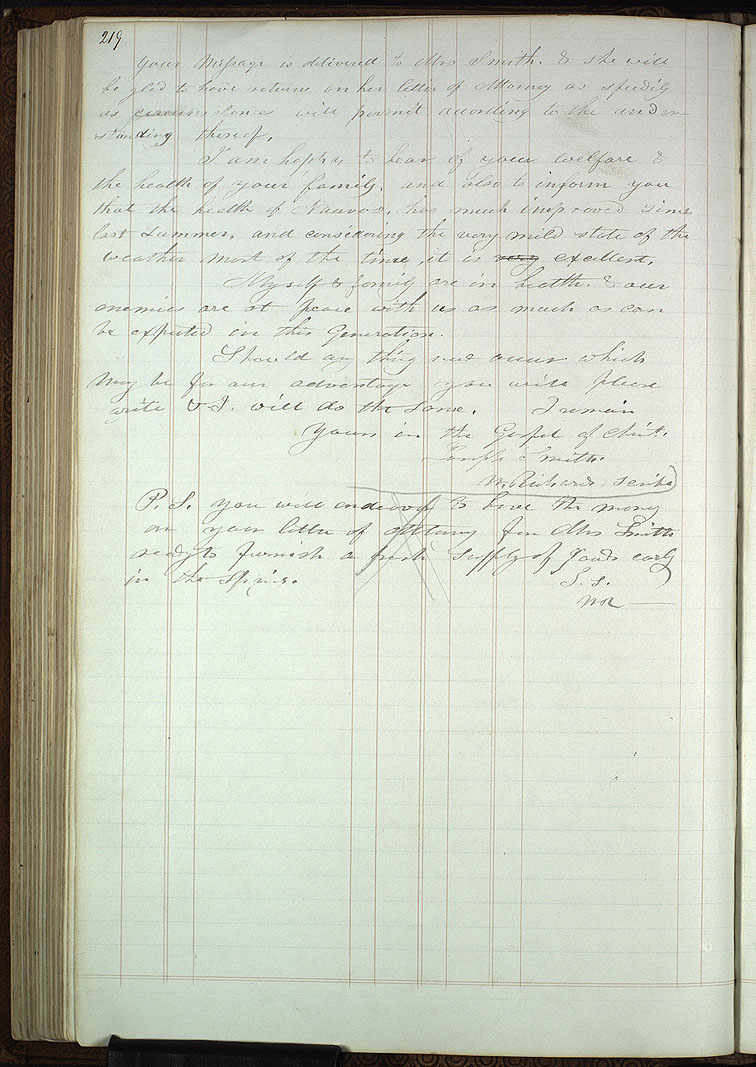 219
Your Message is delivered to Mrs Smith. & she will
be glad to have returns on her letter of Attorney as speedily
as circumstances will permit according to the under-
standing thereof.
I am happy to hear of your welfare &
the health of your family. and also to inform you
that the health of Nauvoo, has much improved since
last summer, and considering the very mild state of the
weather most of the time, it is very excellent.
Myself & family are in health. & our
enemies are at peace with us as much as can
be expected in this Generation.
Should any thing new occur which
may be for our advantage you will please
write & I. will do the same. I remain
Yours in the Gospel of Christ.
Joseph Smith.
W. Richards scribe
P. S. you will endeavor to have the money
on your letter of attorney from Mrs Smith
ready to furnish a fresh supply of goods early
in the spring. J. S.
WR